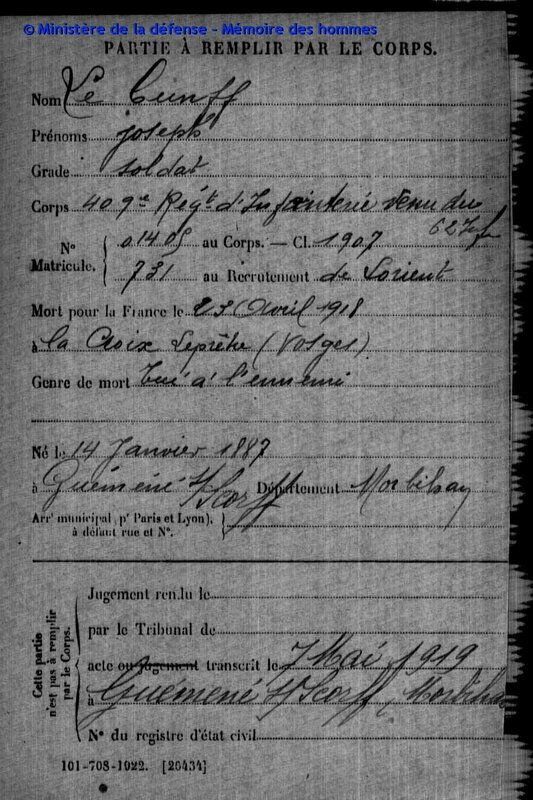 © Ministère de la défense - Mémoire des hommes
PARTIE À REMPLIR PAR LE CORPS.
Nom Le Cunff
Prénoms joseph
Grade soldat
Corps 409e Régt d'Infanterie venu du
62 Inf
N° Matricule. 01405 au Corps. — Cl. 1907
731 au Recrutement de Lorient
Mort pour la France le 23 Avril 1918
à la Croix Leprêtre (Vosges)
Genre de mort tué à l'ennemi
Né le 14 Janvier 1887
à Guémené s/Scorff Département Morbihan
Arrt municipal (pr Paris et Lyon),
à défaut rue et N°.
Cette partie
n'est pas à remplir
par le Corps.
Jugement rendu le
par le Tribunal de
acte ou jugement transcrit le 7 Mai 1919
à Guémené s/Scorff Morbihan
N° du registre d'état civil
101-708-1922. [20434]